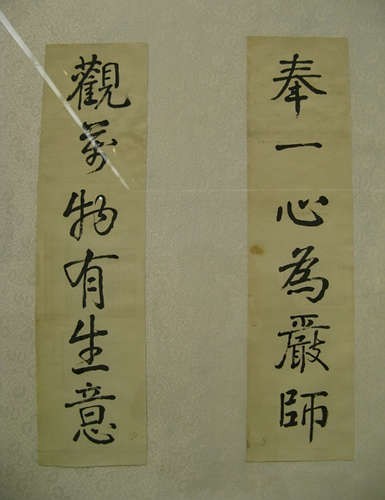 奉一心為嚴師
觀萬物有生意